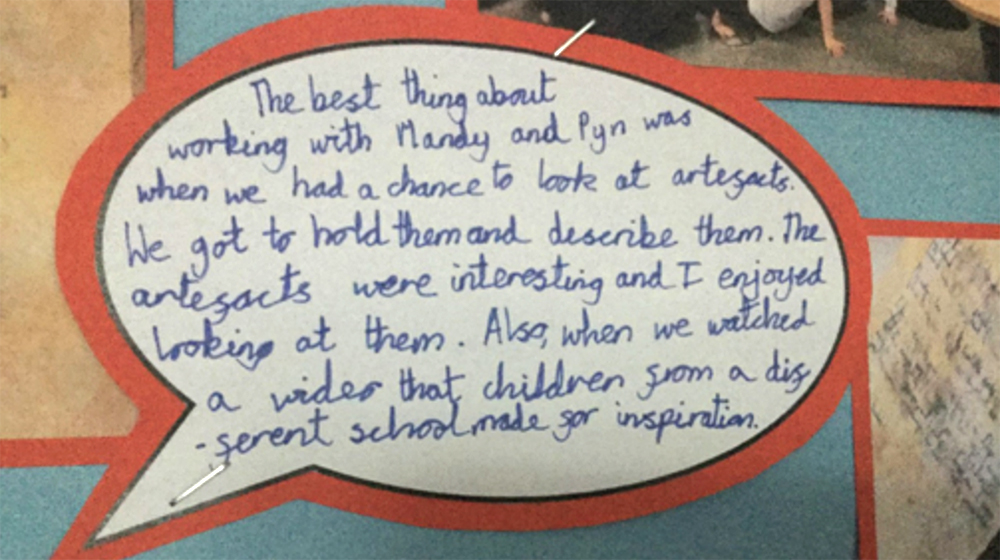 The best thing about
working with Mandy and Pyn was
when we had a chance to look at artefacts.
We got to hold them and describe them. The
artefacts were interesting and I enjoyed
looking at them. Also, when we watched
a wideo that children from a dif
-ferent school made for inspiration.